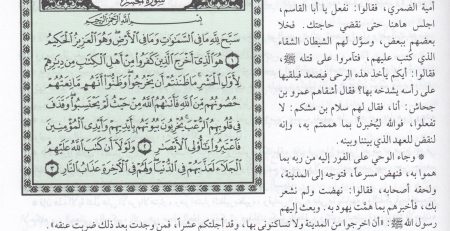 سورة الحشر
بسم الله الرحمن الرحيم
سَبَّحَ لِلَّهِ مَا فِي السَّمَوَاتِ وَمَا فِي الْأَرْضِ وَهُوَ الْعَزِيزُ الْحَكِيمُ
١ هُوَ الَّذِي أَخْرَجَ الَّذِينَ كَفَرُوا مِنْ أَهْلِ الْكِتَابِ مِن دِيَارِهِمْ
لِأَوَّلِ الْحَشْرِ مَا ظَنَنتُمْ أَن يَخْرُجُوا وَظَنُّوا أَنَّهُم مَّانِعَتُهُمْ
حُصُونُهُم مِّنَ اللَّهِ فَأَتَاهُمُ اللَّهُ مِنْ حَيْثُ لَمْ يَحْتَسِبُوا وَقَذَفَ
فِي قُلُوبِهِمُ الرُّعْبَ يُخْرِبُونَ بُيُوتَهُم بِأَيْدِيهِمْ وَأَيْدِي الْمُؤْمِنِينَ
فَاعْتَبِرُوا يَا أُولِي الْأَبْصَارِ ٢ وَلَوْلَا أَن كَتَبَ اللَّهُ عَلَيْهِمُ
الْجَلَاءَ لَعَذَّبَهُمْ فِي الدُّنْيَا وَلَهُمْ فِي الْآخِرَةِ عَذَابُ النَّارِ ٣
أمية الضمري، فقالوا: نفعل يا أبا القاسم،
اجلس هاهنا حتى نقضي حاجتك. فخلا
بعضهم ببعض، وسوّل لهم الشيطان الشقاء
الذي كتب عليهم، فتآمروا على قتله ﷺ،
فقالوا: أيكم يأخذ هذه الرحى فيصعد فيلقيها
على رأسه يشدخه بها؟ فقال أشقاهم عمرو بن
جحاش: أنا، فقال لهم سلام بن مشكم: لا
تفعلوا، فوالله ليُخبرنّ بما هممتم به، وإنه
لنقض للعهد الذي بيننا وبينه.
* وجاء الوحي على الفور إليه من ربه بما
هموا به، فنهض مسرعاً، فتوجه إلى المدينة،
ولحقه أصحابه، فقالوا: نهضت ولم نشعر
بك، فأخبرهم بما همّت يهود به. وبعث إليهم
رسول الله ﷺ: «أن اخرجوا من المدينة ولا تساكنوني بها، وقد أجلتكم عشراً، فمن وجدت بعد ذلك ضربت عنقه».